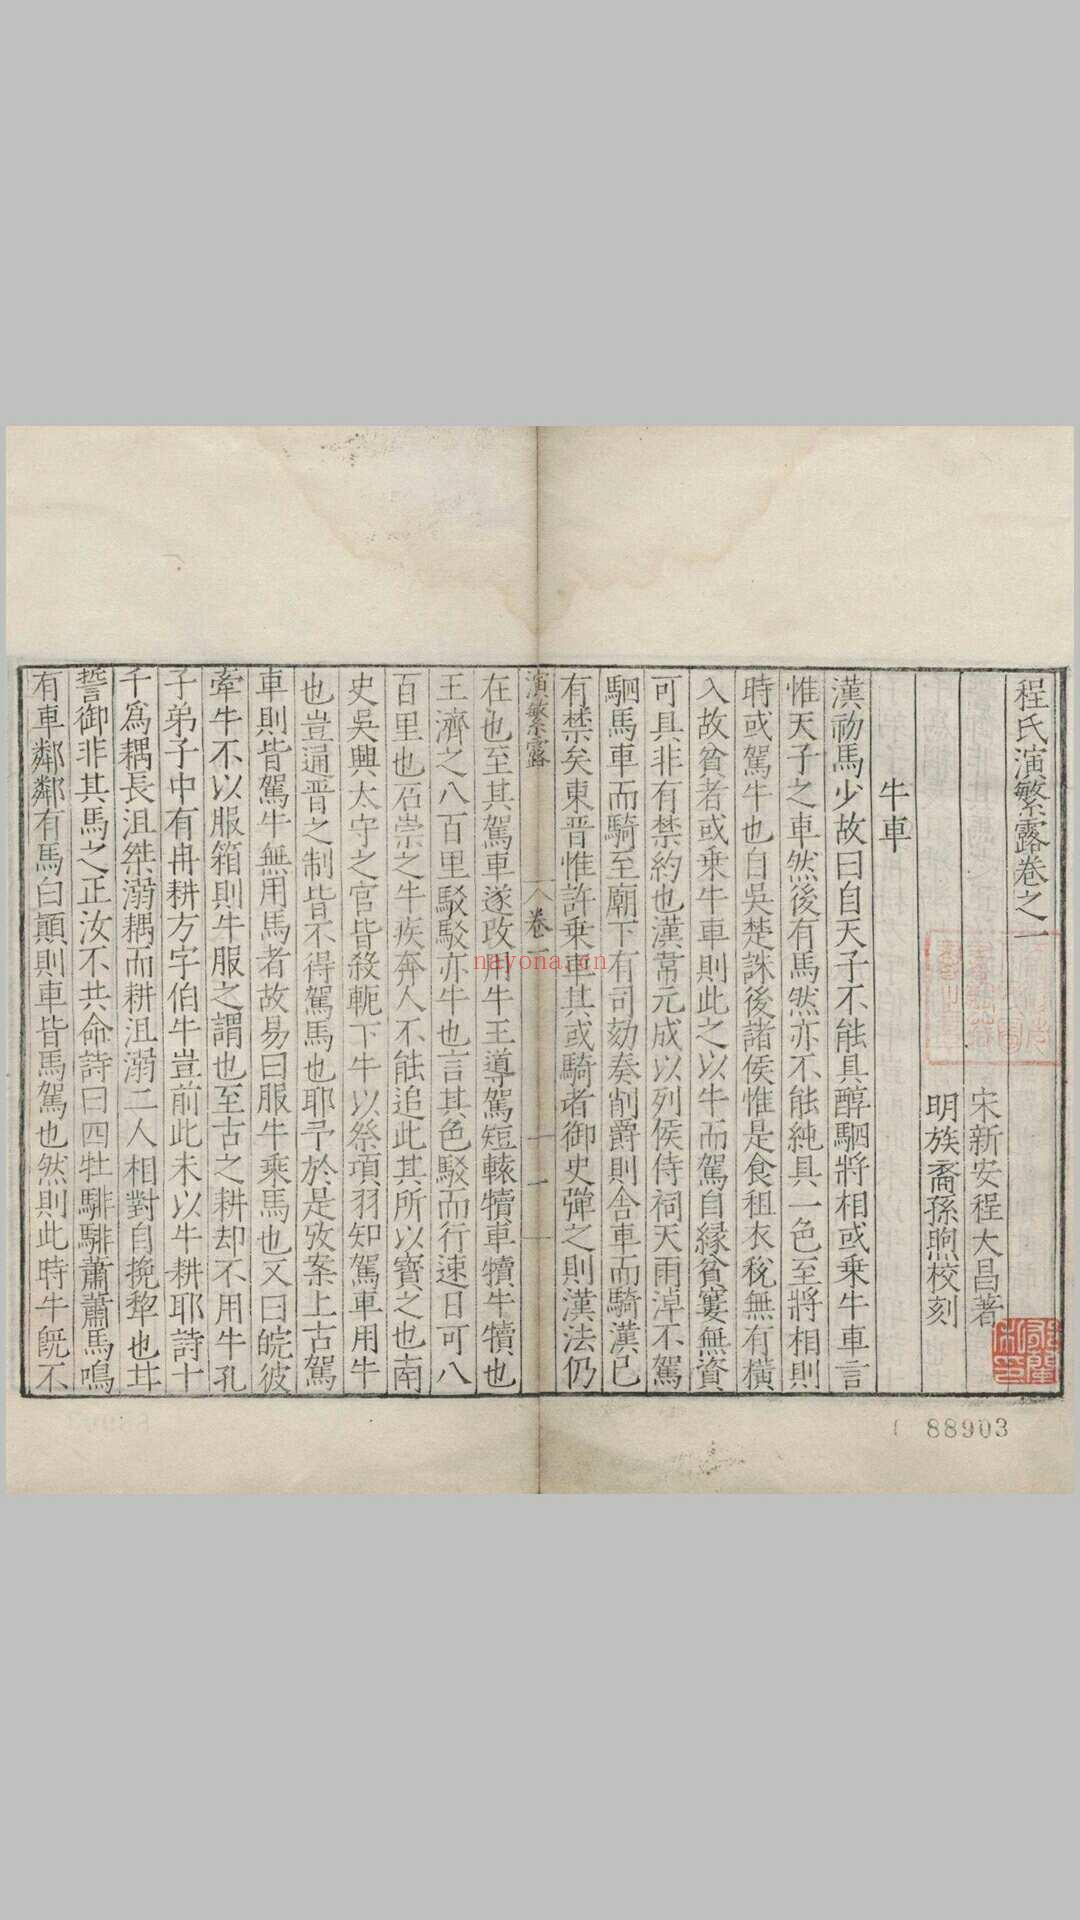 程氏演繁露卷之一
宋新安程大昌著
明族裔孫煦校刻
牛車
漢初馬少故曰自天子不能具醇駟將相或乗牛車言
惟天子之車然後有馬然亦不能純具一色至將相則
時或駕牛也自吳楚誅後諸侯惟是食租衣稅無有橫
入故貧者或乗牛車則此之以牛而駕自緣貧窶無資
可具非有禁約也漢韋元成以列侯侍祠天雨淖不駕
駟馬車而騎至廟下有司劾奏削爵則舎車而騎漢已
有禁矣東晋惟許乗車其或騎者御史彈之則漢法仍
演繁露
卷一
一
在也至其駕車遂改用牛王導駕短轅犢車犢牛犢也
王濟之八百里駮駮亦牛也言其色駮而行速日可八
百里也石崇之牛疾奔人不能追此其所以寳之也南
史吳興太守之官皆殺軛下牛以祭項羽知駕車用牛
也豈通晋之制皆不得駕馬也耶予於是攷案上古駕
車則皆駕牛無用馬者故易曰服牛乗馬也又曰睆彼
牽牛不以服箱則牛服之謂也至古之耕却不用牛孔
子弟子中有冉耕方字伯牛豈前此未以牛耕耶詩十
千爲耦長沮桀溺耦而耕沮溺二人相對自挽犂也甘
誓御非其馬之正汝不共命詩曰四牡騑騑蕭蕭馬鳴
有車鄰鄰有馬白顚則車皆馬駕也然則此時牛旣不
88903
nayona.cn